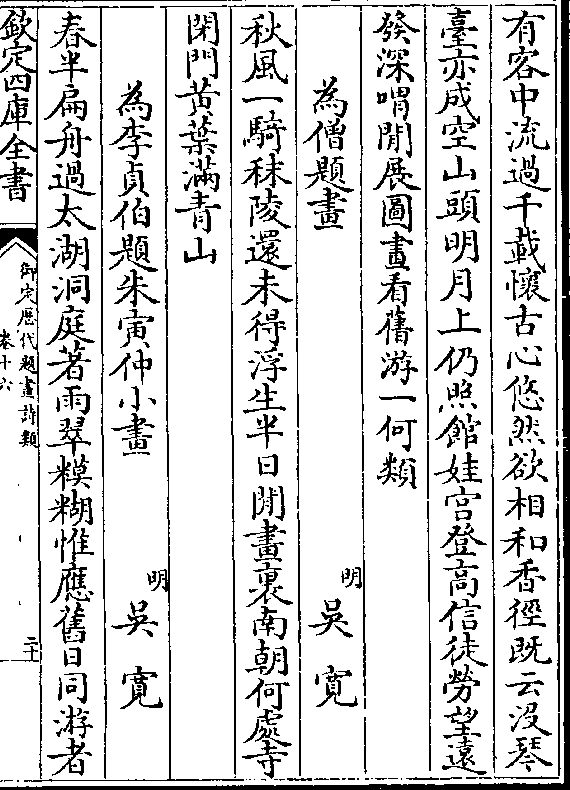 有客中流過千載懷古心悠然欲相和香徑既云沒琴
臺亦成空山頭明月上仍照館娃宮登高信徒勞望遠
發深喟閒展圖畫看舊游一何類
為僧題畫 明 吳寬
秋風一騎秣陵還未得浮生半日閒畫裏南朝何處寺
閉門黃葉滿青山
為李貞伯題朱寅仲小畫 明 吳寬
春半扁舟過太湖洞庭著雨翠糢糊惟應舊日同游者
欽定四庫全書
御定歷代題畫詩類
卷十六
二十